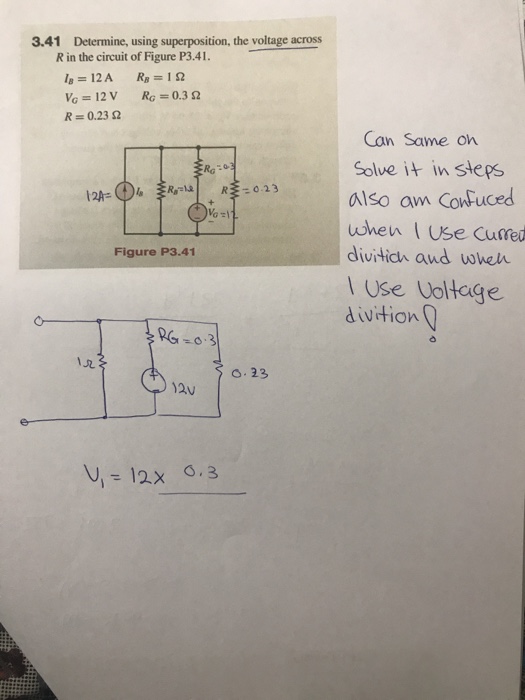 3.41 Determine, using superposition, the voltage across
R in the circuit of Figure P3.41.
I_B = 12 A R_B = 1 Ω
V_G = 12 V R_G = 0.3 Ω
R = 0.23 Ω
R_G=0.3
12A= I_B R_B=1Ω R =0.23
+
V_G=12
−
Figure P3.41
Can Same on
Solve it in steps
also am Confuced
when I Use Curred
divitich and when
I Use Voltage
divition?
RG=0.3
1Ω
0.23
+
12V
V₁ = 12x 0.3